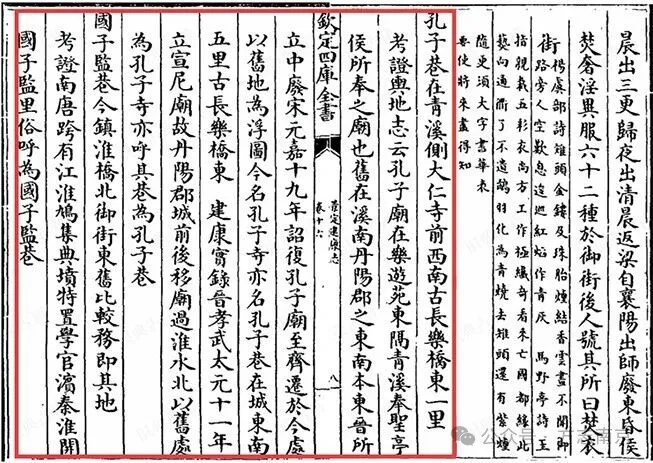 晨出三更歸夜出清晨返梁自襄陽出師廢東昏侯
焚奢淫異服六十二種於御街後人號其所曰焚衣
街
楊虞部詩雉頭金鏤及珠胎煙結香雲盡不開即
路旁人空歎息逡巡紅焰作青灰 馬野亭詩王
指視裁五彩衣尚方工作極纖奇看來亡國都緣此
藝向通衢了不遺鷸羽化為青燒去雉頭還有紫煙
隨更須大字書華表
要使將來盡得知
孔子巷在青溪側大仁寺前西南古長樂橋東一里
考證輿地志云孔子廟在樂遊苑東隔青溪奉聖亭
侯所奉之廟也舊在溪南丹陽郡之東南本東晉所
欽定四庫全書
景定建康志
卷十六
八
立中廢宋元嘉十九年詔復孔子廟至齊遷於今處
以舊地為浮圖今名孔子寺亦名孔子巷在城東南
五里古長樂橋東 建康實錄晉孝武太元十一年
立宣尼廟故丹陽郡城前後移廟過淮水北以舊處
為孔子寺亦呼其巷為孔子巷
國子監巷今鎮淮橋北御街東舊比較務即其地
考證南唐跨有江淮鳩集典墳特置學官濵秦淮開
國子監里俗呼為國子監巷
公众号·方志南京